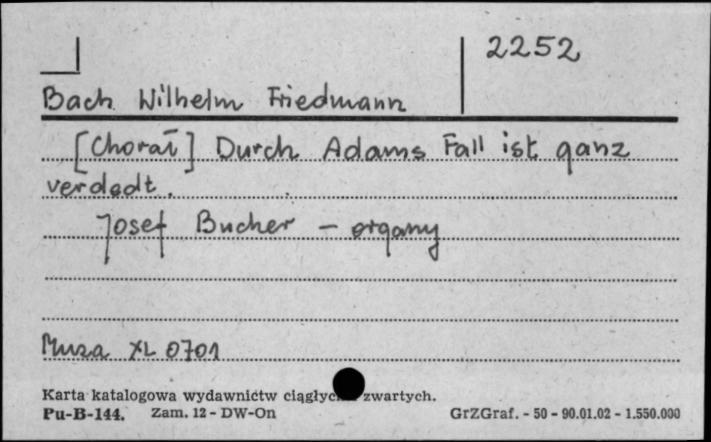 2252
Bach Wilhelm Friedmann
[Chorał] Durch Adams Fall ist ganz
verdedt.
Josef Bucher - organy
Muza XL 0701
Karta katalogowa wydawnictw ciągłych zwartych.
Pu-B-144. Zam. 12 - DW-On GrZGraf. - 50 - 90.01.02 - 1.550.000